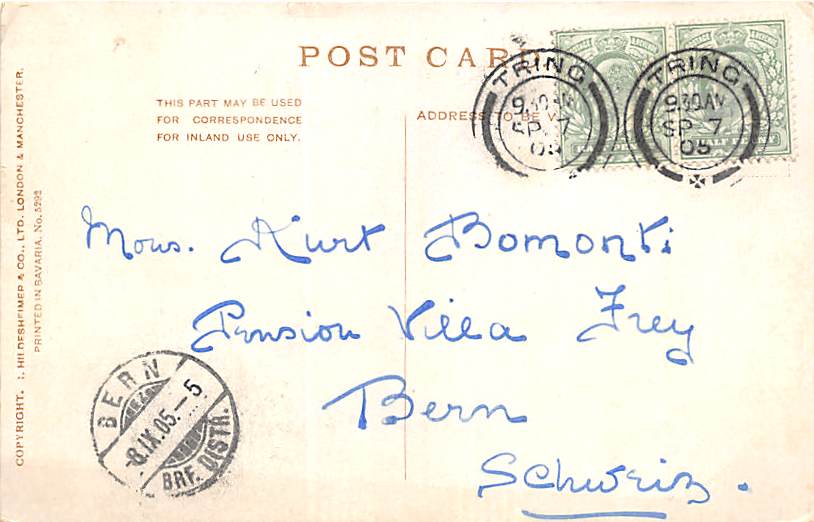 POST CARD
THIS PART MAY BE USED
FOR CORRESPONDENCE
FOR INLAND USE ONLY.
ADDRESS TO BE
TRING
9.30AM
SP 7
05
TRING
9.30AM
SP 7
05
HALF PENNY
Mons. Kurt Bomonti
Pension Villa Frey
Bern
Schweiz.
BERN
-8.IX.05.-5
BRF. DISTR.
COPYRIGHT. HILDESHEIMER & CO., LTD. LONDON & MANCHESTER.
PRINTED IN BAVARIA. No. 5292